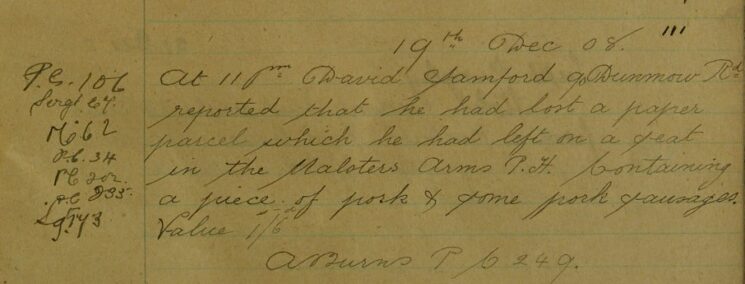 19th Dec 08. 111
P.C. 106
Sergt 67.
PC 62
P.C. 34
PC 202.
P.C. 235.
At 11 pm David Samford 9 Dunmow Rd
reported that he had lost a paper
parcel which he had left on a seat
in the Malsters Arms P.H. Containing
a piece of pork & some pork sausages.
Value 1/6d
A Burns P C 249.